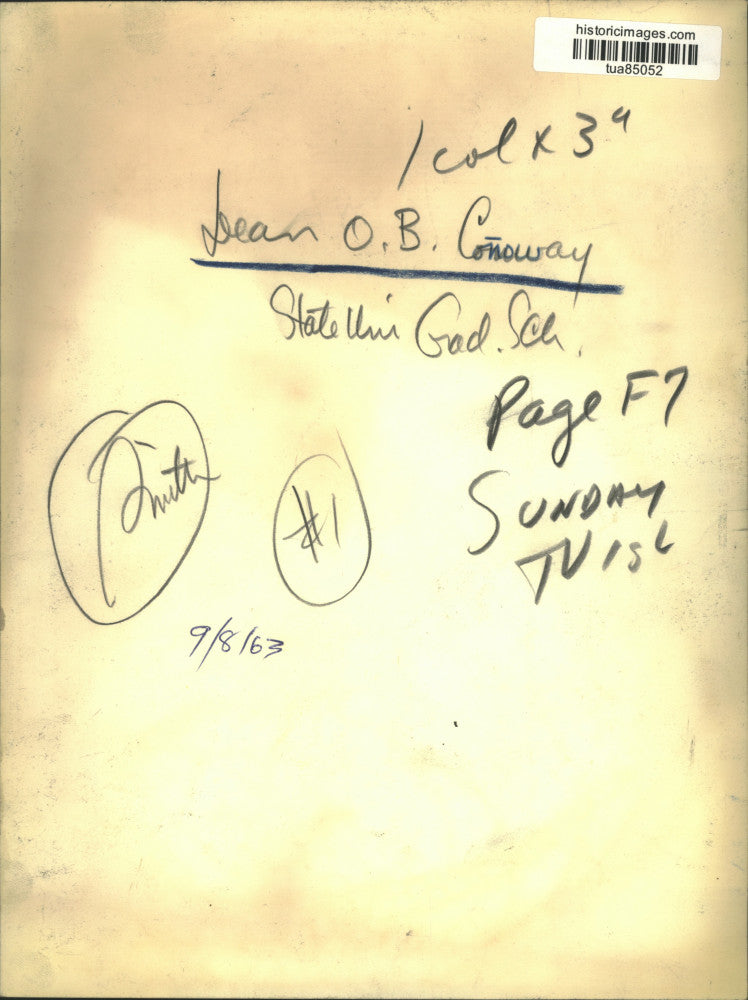 historicimages.com
tua85052
1 col x 3"
Dean O.B. Conoway
State Uni Grad. Sch.
Page F7
SUNDAY
Smith
#1
9/8/63